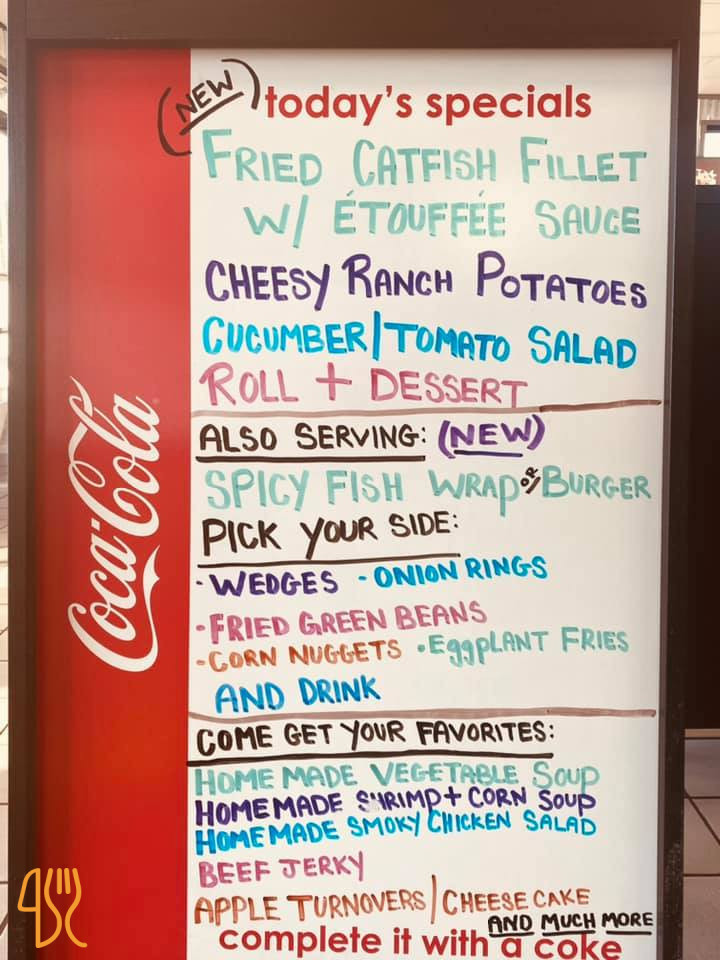 (NEW) today's specials
FRIED CATFISH FILLET
W/ ÉTOUFFÉE SAUCE
CHEESY RANCH POTATOES
CUCUMBER/TOMATO SALAD
ROLL + DESSERT
ALSO SERVING: (NEW)
SPICY FISH WRAP OR BURGER
PICK YOUR SIDE:
· WEDGES · ONION RINGS
· FRIED GREEN BEANS
· CORN NUGGETS · EggPLANT FRIES
AND DRINK
COME GET YOUR FAVORITES:
HOME MADE VEGETABLE SOUP
HOMEMADE SHRIMP + CORN SOUP
HOMEMADE SMOKY CHICKEN SALAD
BEEF JERKY
APPLE TURNOVERS/CHEESE CAKE
AND MUCH MORE
complete it with a coke
Coca-Cola